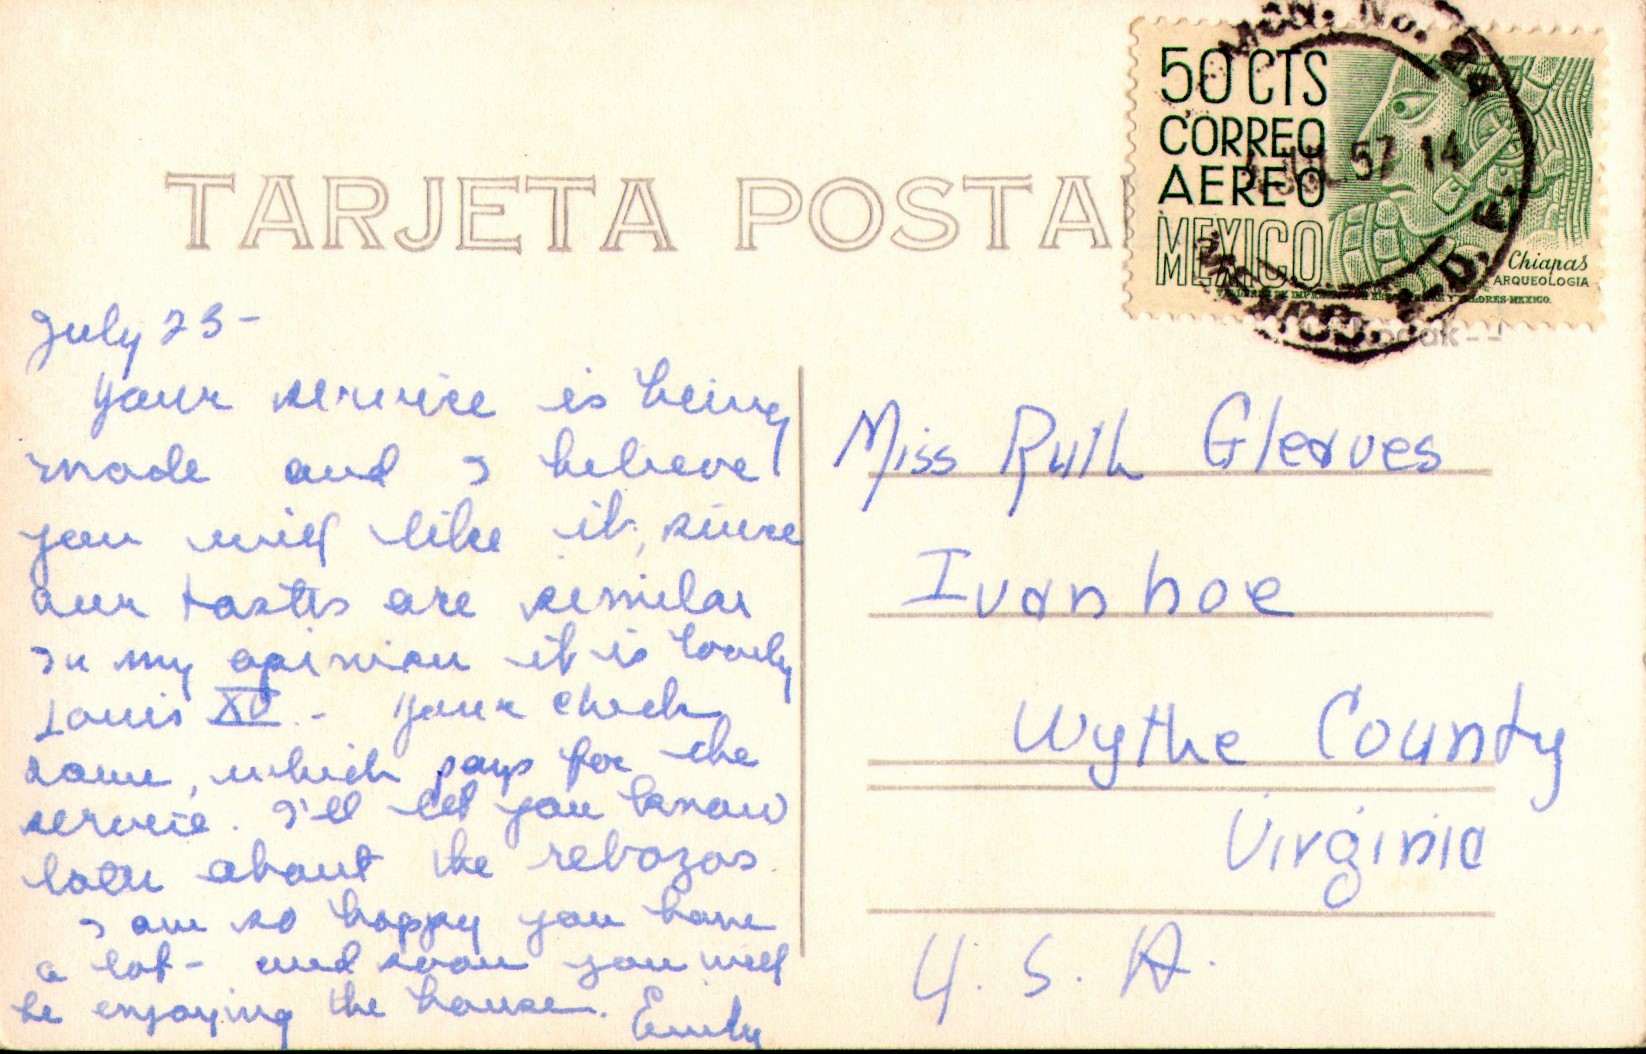 50 CTS
CORREO
AEREO
MEXICO
Chiapas
ARQUEOLOGIA
JUL 57 14
MEXICO, D.F.
TARJETA POSTA
July 23-
Your service is being
made and I believe
you will like it, since
our tastes are similar
In my opinion it is lovely
Louis XV - Your check
came, which pays for the
service. I'll let you know
later about the rebozos.
I am so happy you have
a lot - and soon you will
be enjoying the house. Emily
Miss Ruth Gleaves
Ivanhoe
Wythe County
Virginia
U. S. A.